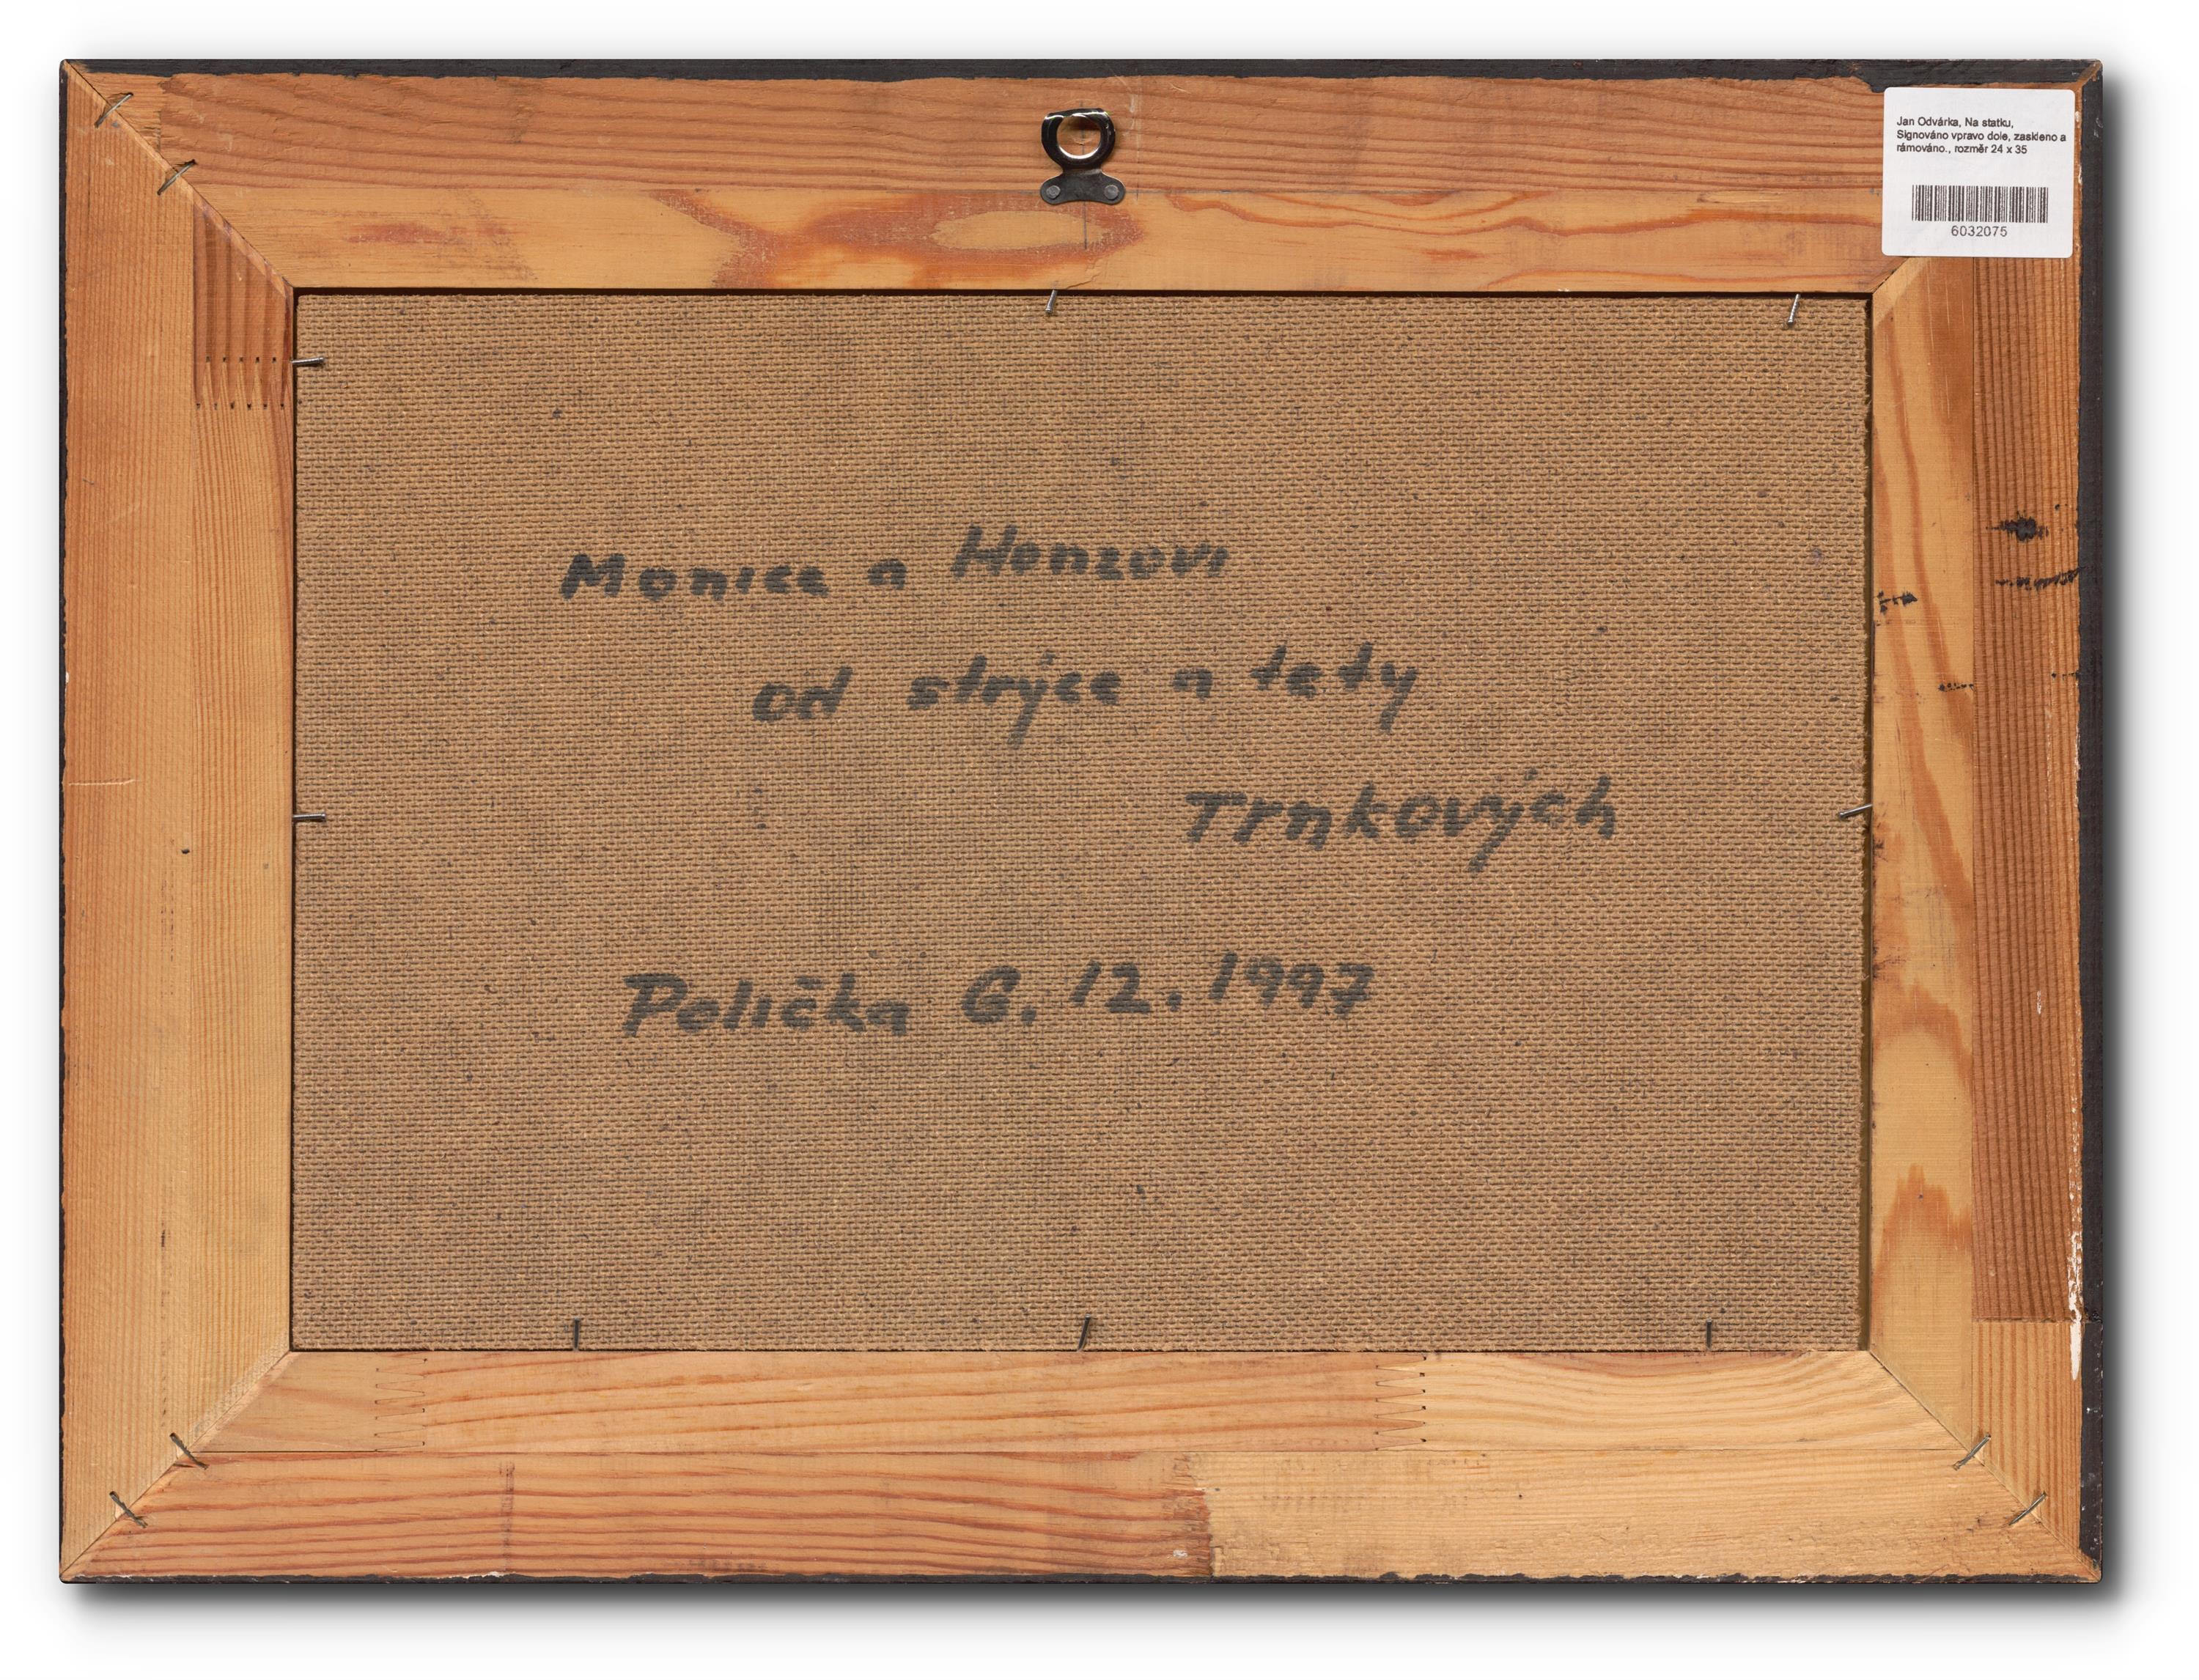 Jan Odvárka, Na statku,
Signováno vpravo dole, zaskleno a
rámováno., rozměr 24 x 35
6032075
Monice a Honzovi
od strýce a tety
Trnkových
Polička 6. 12. 1997